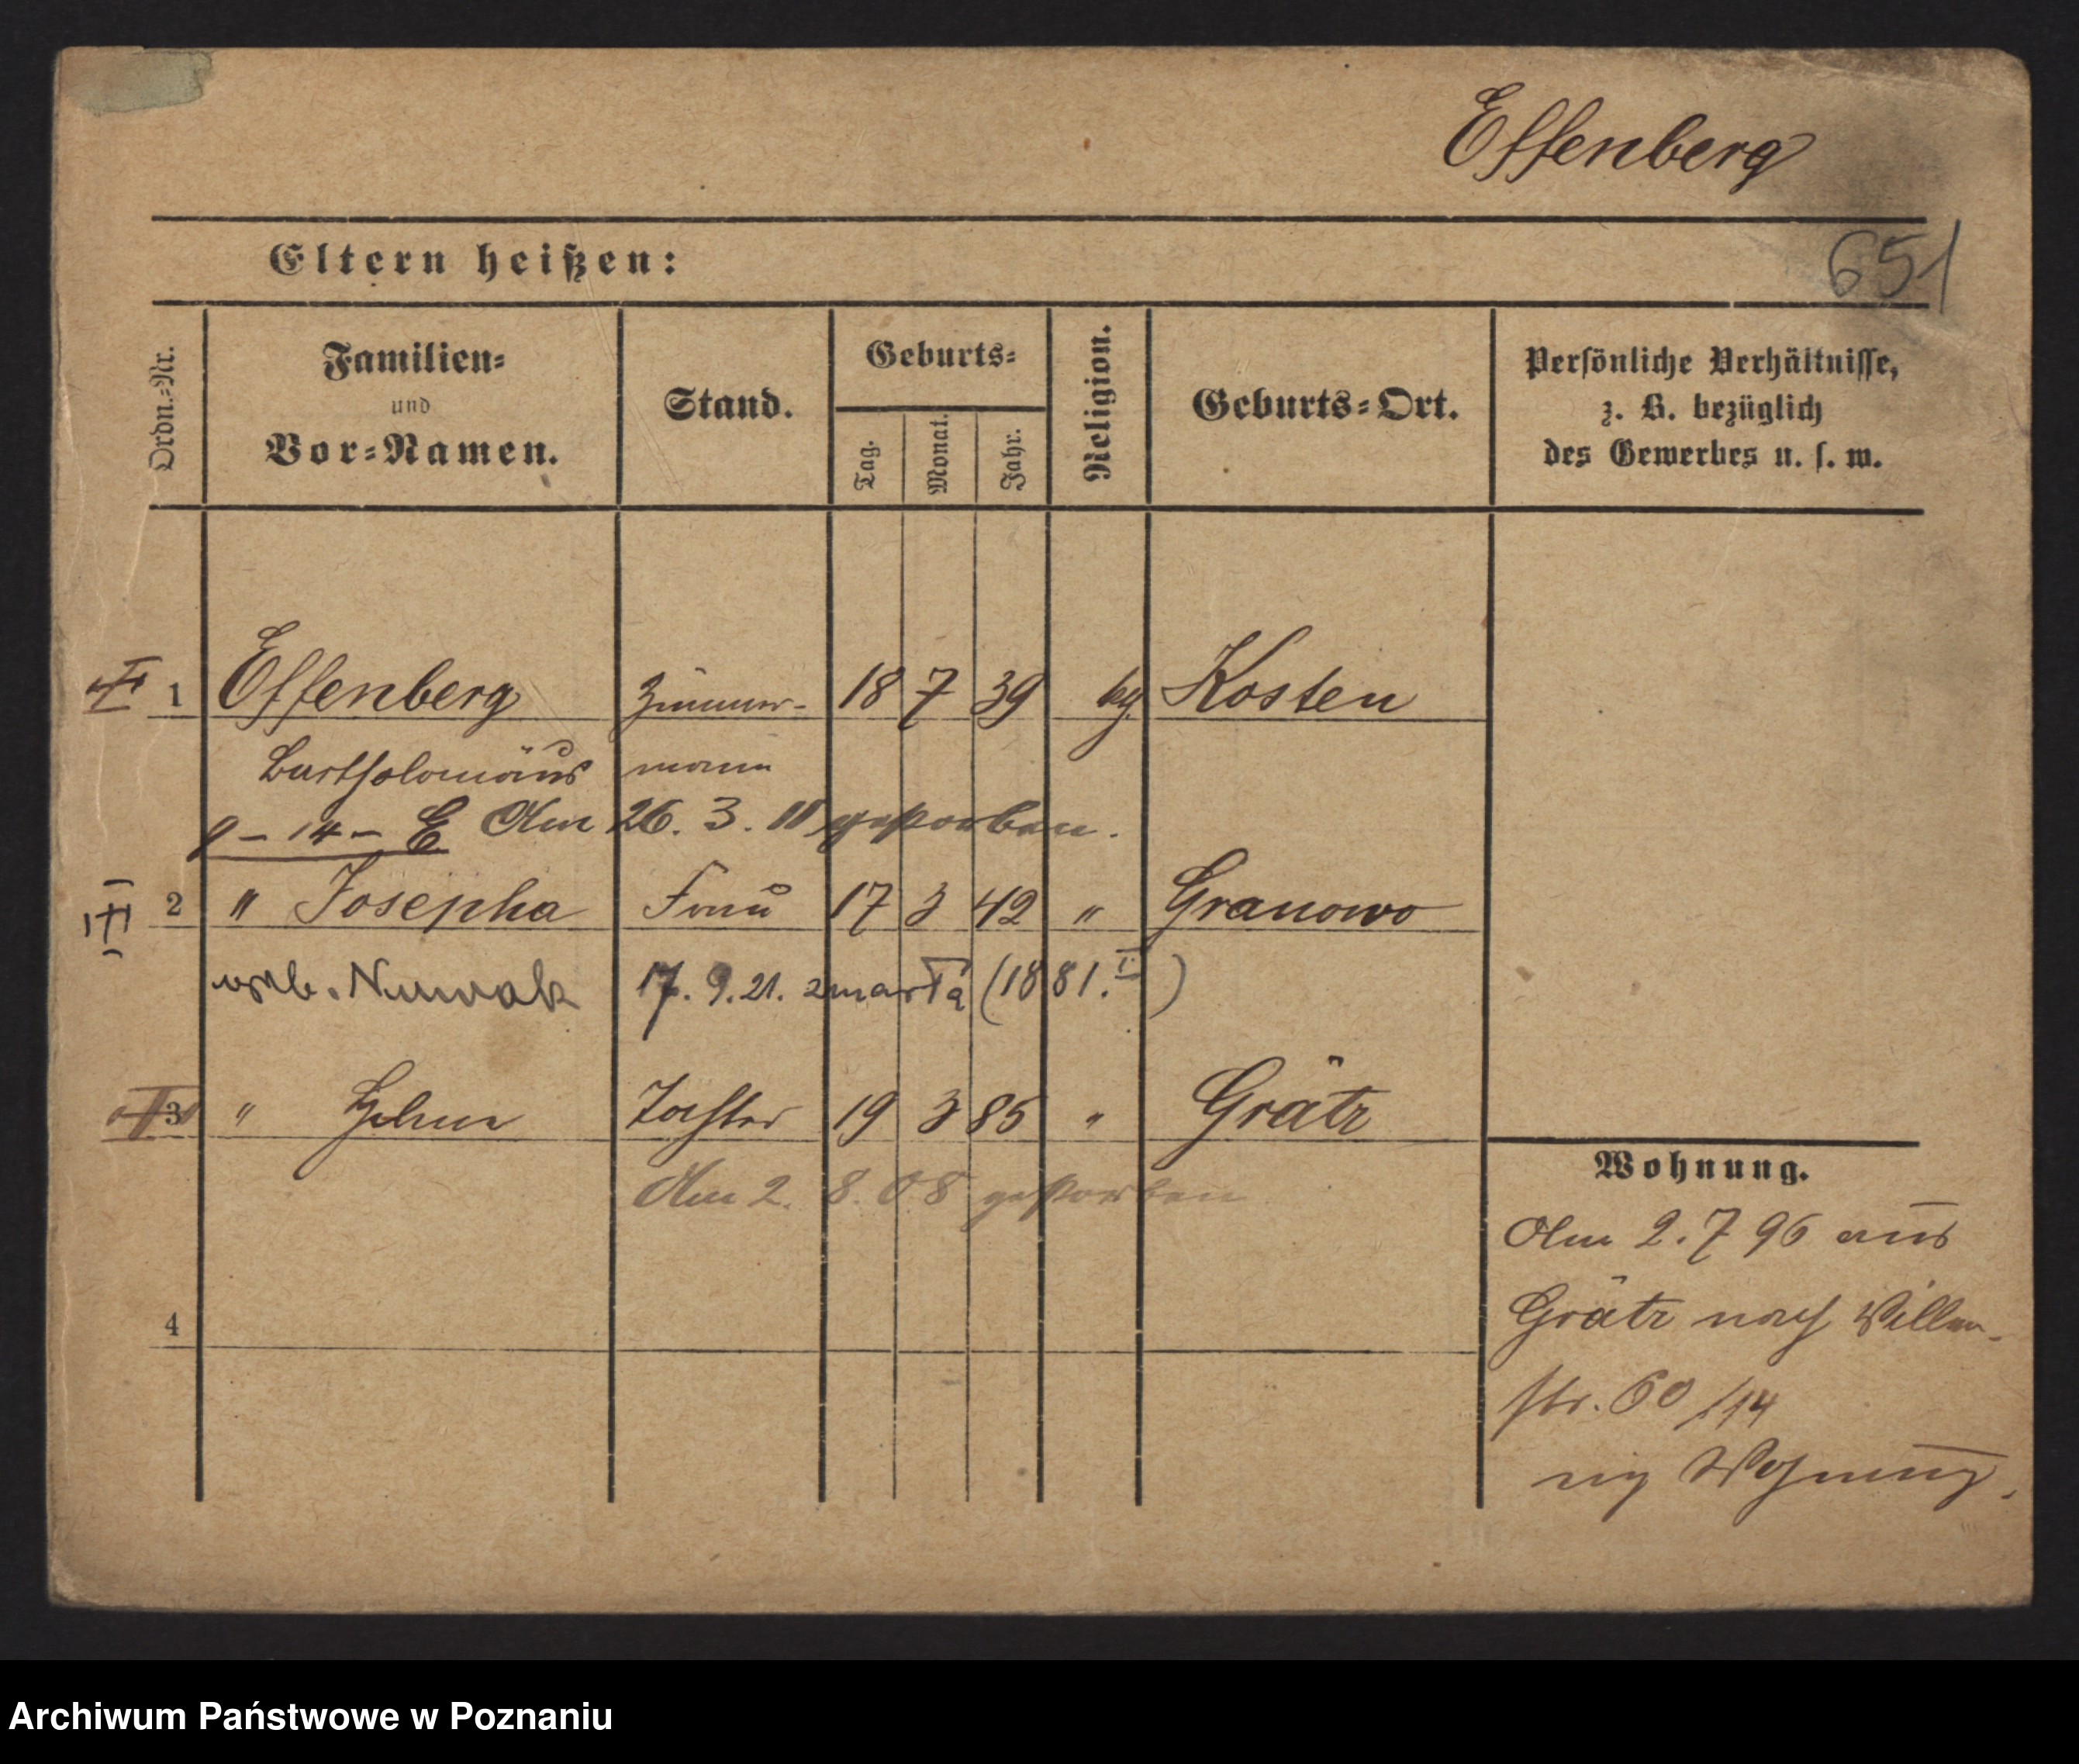 Effenberg
Eltern heißen:
651
Ordn.-Nr.
Familien-
und
Vor-Namen.
Stand.
Geburts-
Tag.
Monat.
Jahr.
Religion.
Geburts-Ort.
Persönliche Verhältnisse,
z. B. bezüglich
des Gewerbes u. s. w.
1 Effenberg Zimmer- 18 7 39 kg Kosten
Bartholomäus mann
14 – E Am 26. 3. 11 gestorben.
2 " Josepha Frau 17 3 42 " Granowo
Nowak 17. 9. 21. zmarła (1881. I)
3 " Tochter 19 3 85 " Grätz
Am 2. 8. 08 gestorben
4
Wohnung.
Am 2. 7 96 aus
Grätz nach
str. 60/14
Wohnung.
Archiwum Państwowe w Poznaniu